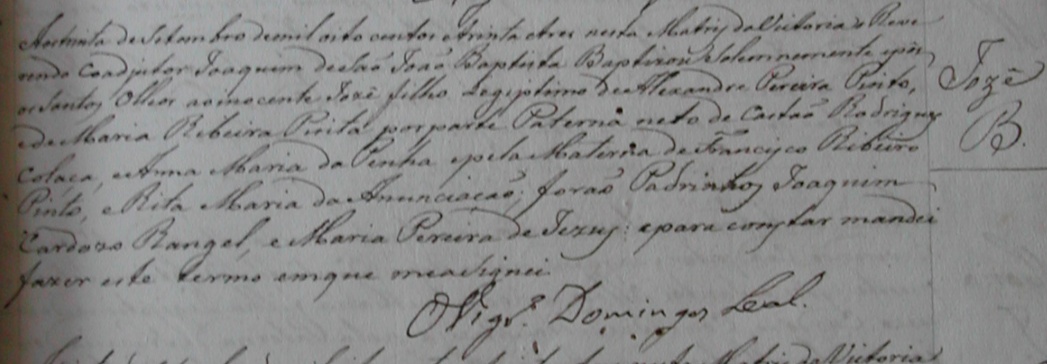 Aostrinta de Setembro demil oito centos etrinta etres nesta Matriz da Victoria o Reve
rendo Coadjutor Joaquim de São João Baptista Baptizou Solemnemente epôs
os Santos Olleos ao inocente Jozé filho Legiptimo de Alexandre Pereira Pinto,
e de Maria Ribeira Pinta por parte Paterna neto de Caetão Rodrigues
Colaca, e Anna Maria da Penha epela Materna de Francisco Ribeiro
Pinto, e Rita Maria da Anunciacaõ; foraõ Padrinhos Joaquim
Cardozo Rangel, e Maria Pereira de Jezus: epara constar mandei
fazer este termo emque measignei
O Vigr.º Domingos Leal.
Jozé
B.
Matriz da Victoria